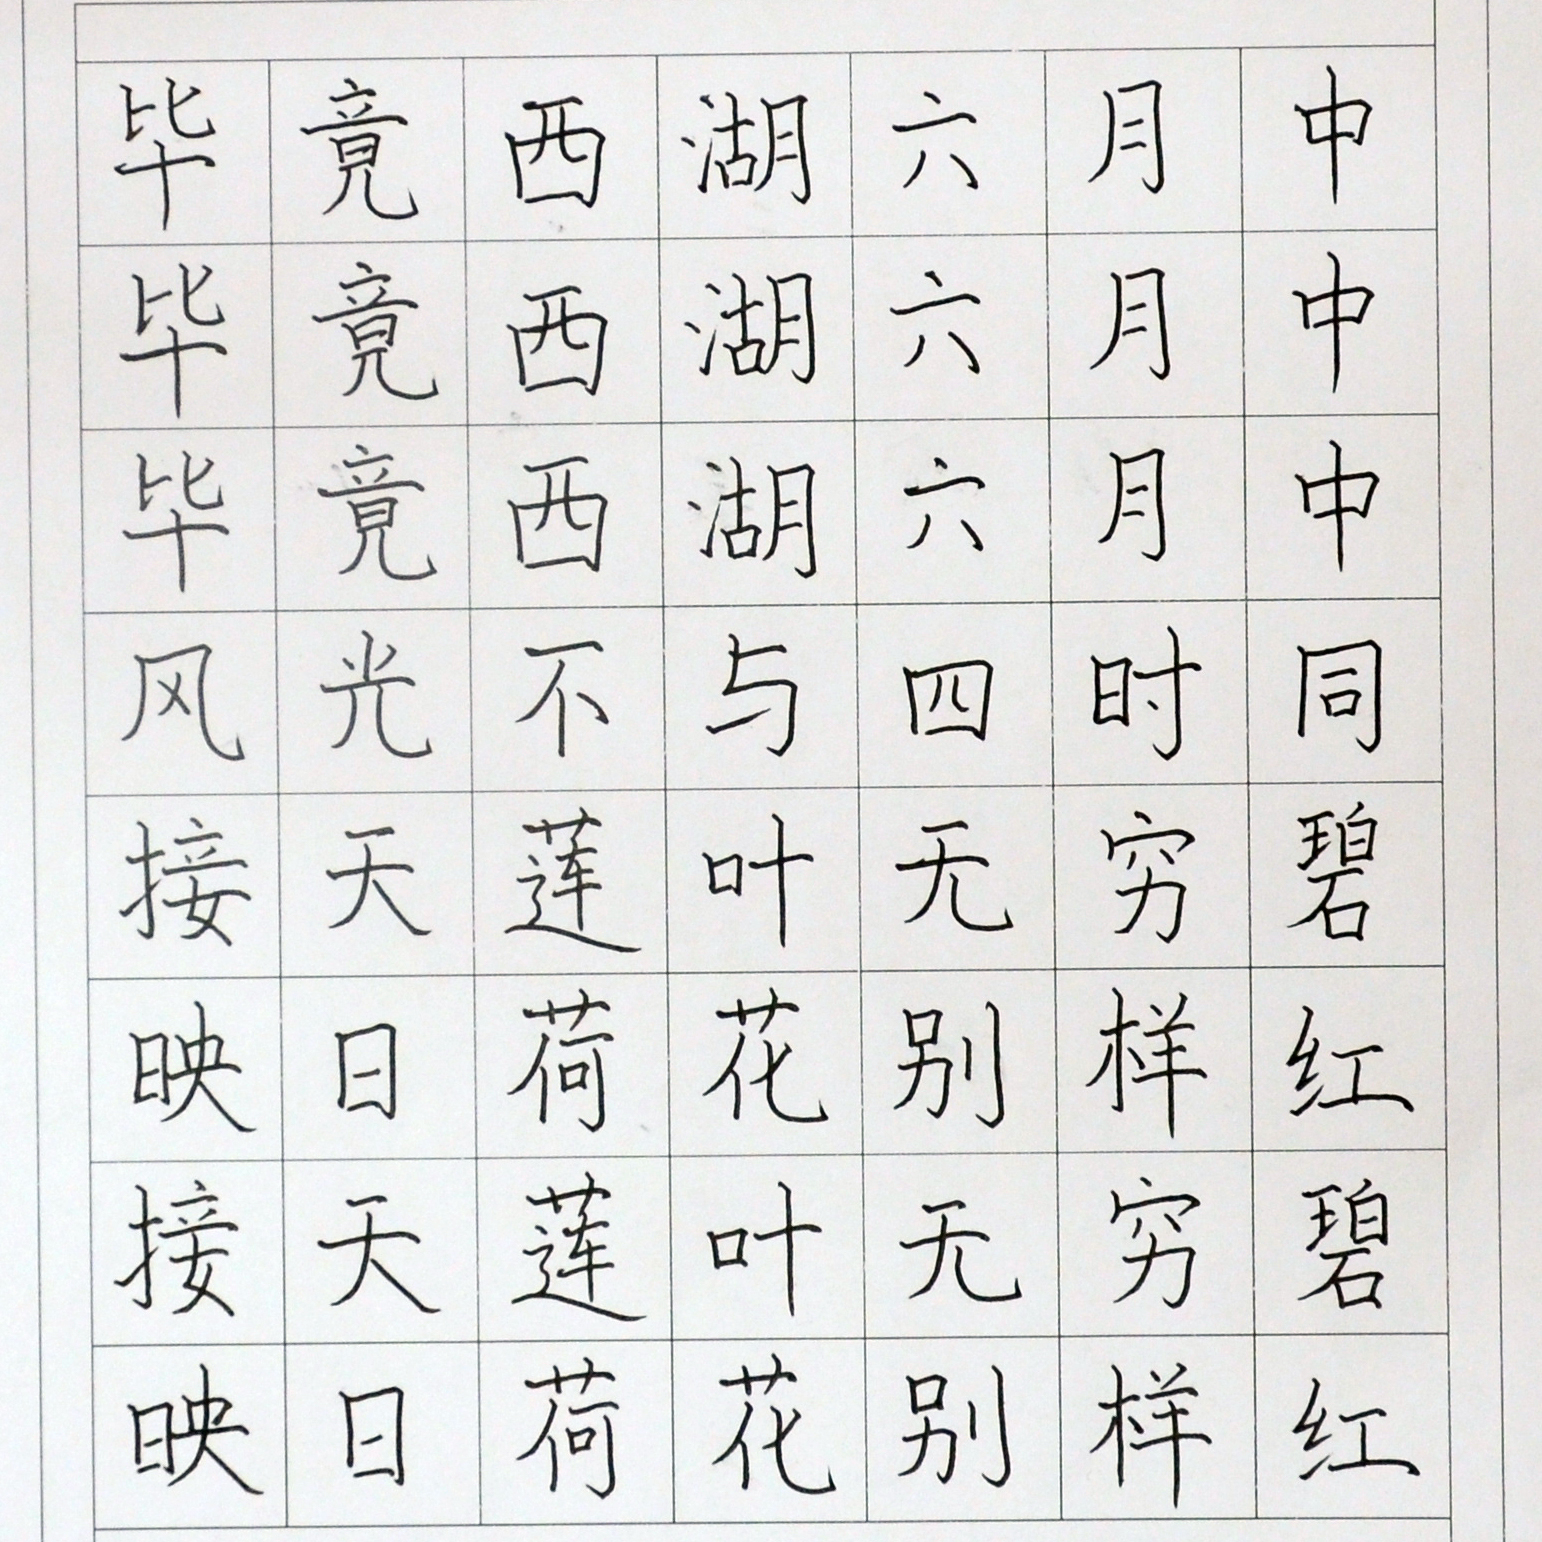 毕竟西湖六月中
毕竟西湖六月中
毕竟西湖六月中
风光不与四时同
接天莲叶无穷碧
映日荷花别样红
接天莲叶无穷碧
映日荷花别样红